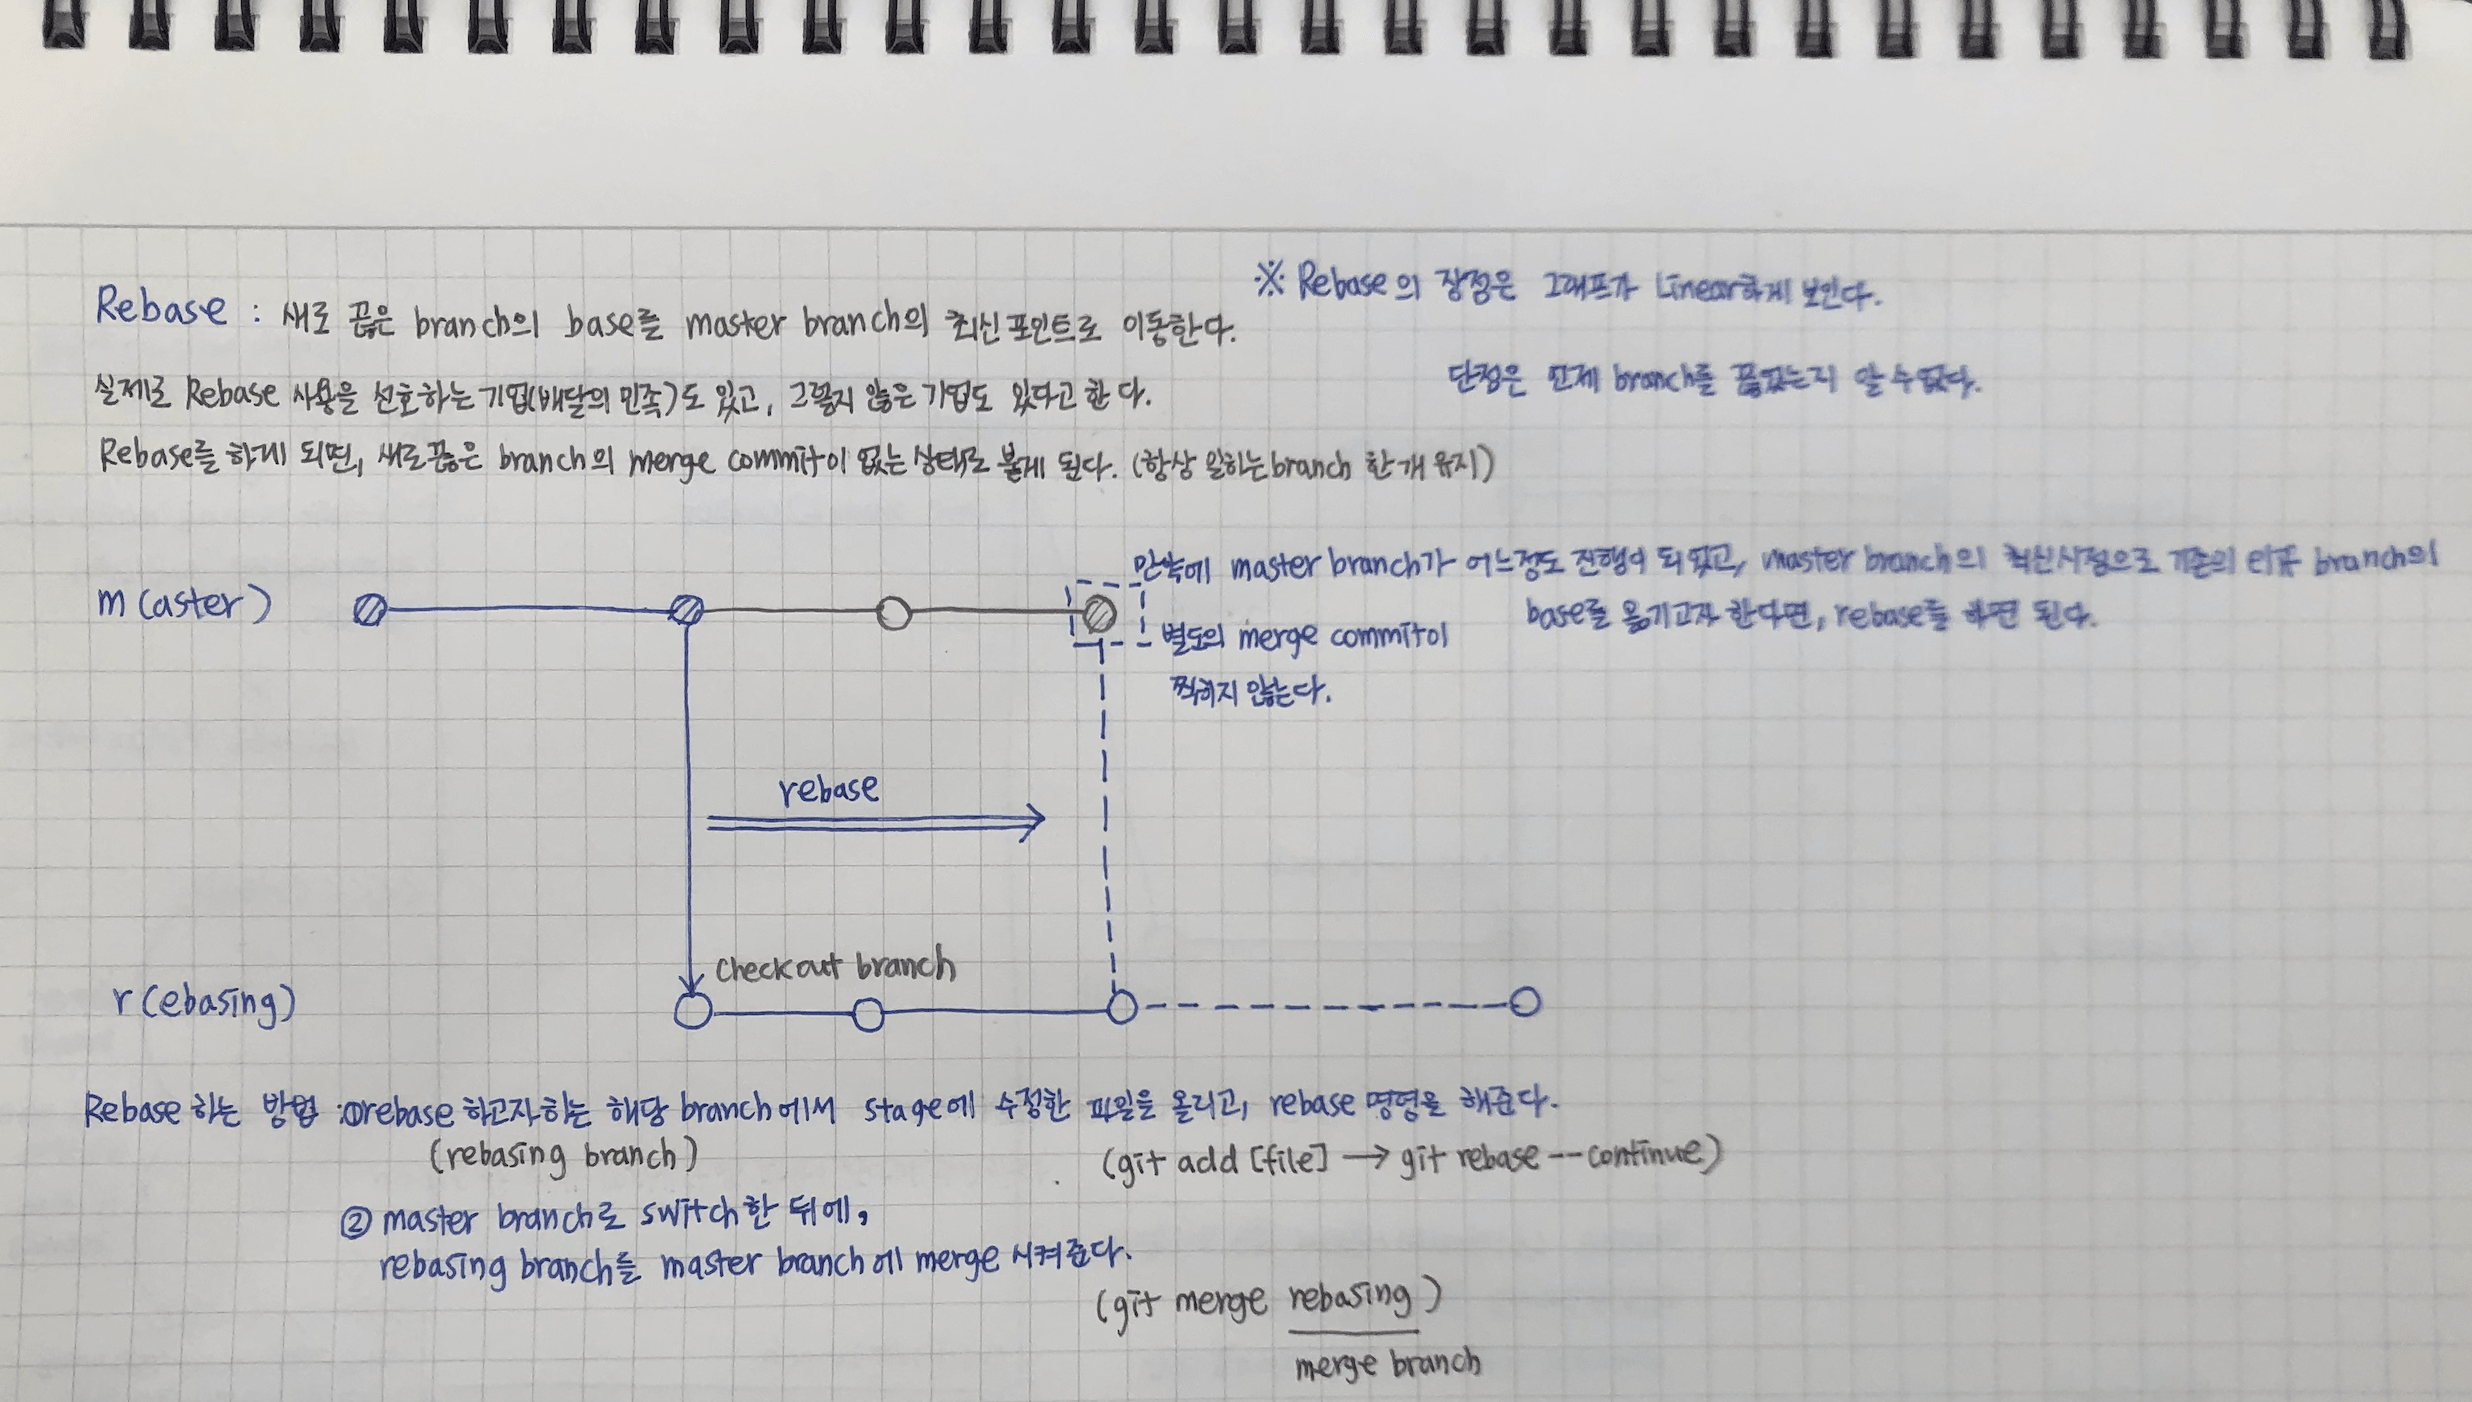 Rebase : 새로 끊은 branch의 base를 master branch의 최신 포인트로 이동한다.
※ Rebase의 장점은 그래프가 Linear하게 보인다.
단점은 언제 branch를 끊었는지 알 수 없다.
실제로 Rebase 사용을 선호하는 기업(배달의 민족)도 있고, 그렇지 않은 기업도 있다고 한다.
Rebase를 하게 되면, 새로 끊은 branch의 merge commit이 없는 상태로 붙게 된다. (항상 일하는 branch 한 개 유지)
만약에 master branch가 어느정도 진행이 되었고, master branch의 최신시점으로 기존의 branch의
base를 옮기고자 한다면, rebase를 하면 된다.
m(aster)
별도의 merge commit이
찍히지 않는다.
rebase
checkout branch
r(ebasing)
Rebase 하는 방법 : ① rebase 하고자 하는 해당 branch에서 stage에 수정한 파일을 올리고, rebase 명령을 해준다.
(rebasing branch)
(git add [file] → git rebase --continue)
② master branch로 switch한 뒤에,
rebasing branch를 master branch에 merge 시켜준다.
(git merge rebasing)
merge branch